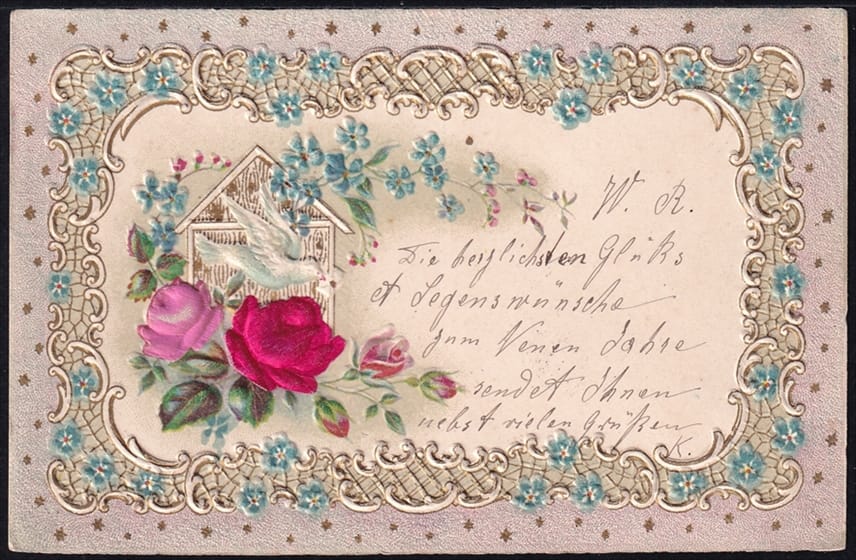 W. R.
Die herzlichsten Glüks
et Segenswünsche
zum Neuen Jahre
sendet Ihnen
nebst vielen Grüßen
K.